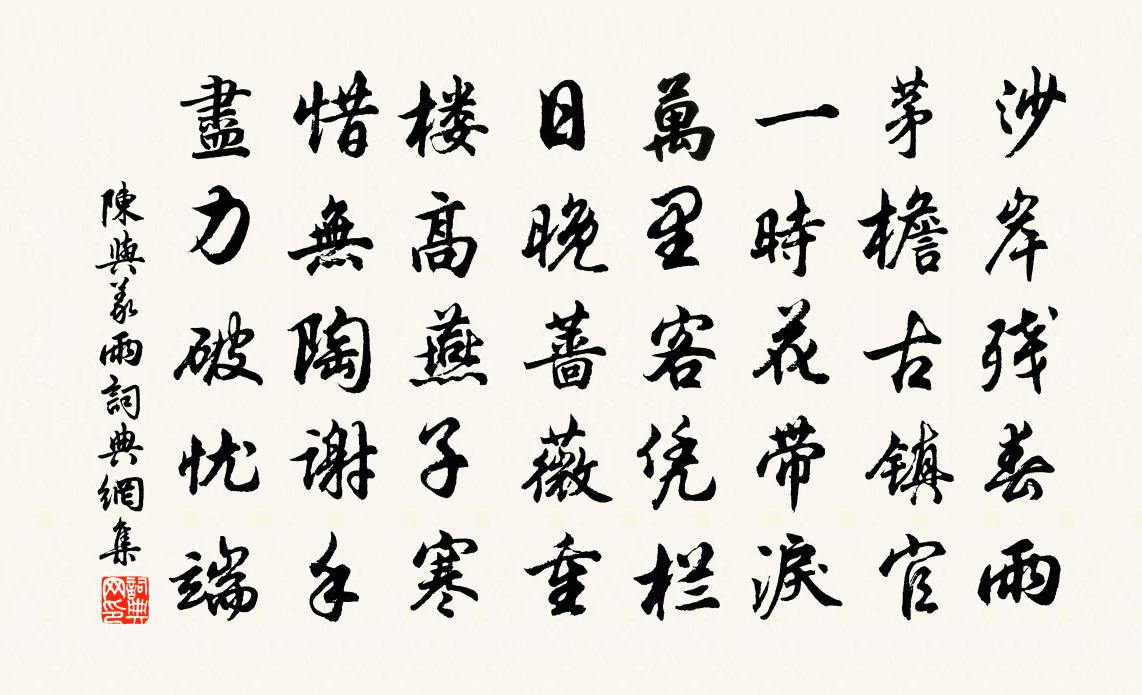 沙岸残春雨
茅檐古镇官
一時花带淚
萬里客凭栏
日晚薔薇重
楼高燕子寒
惜無陶謝手
盡力破忧端
陳與義雨詞典網集
詞典网印